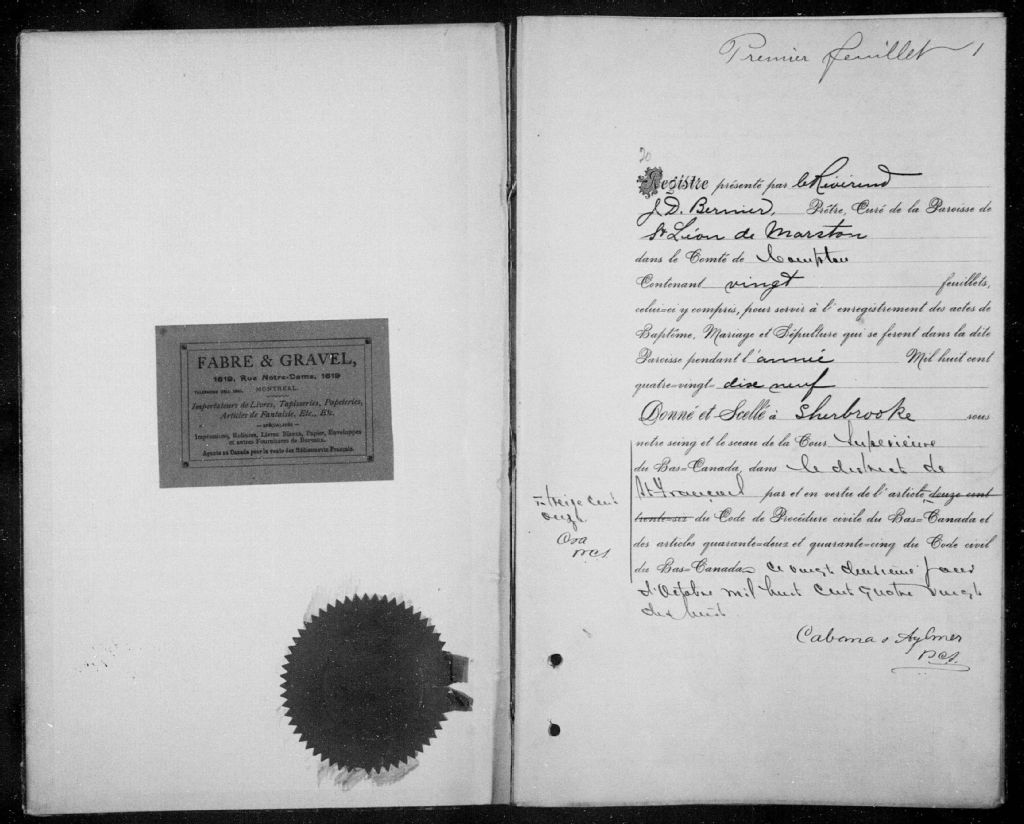 FABRE & GRAVEL,
1619, Rue Notre-Dame, 1619
MONTREAL
Importateurs de Livres, Tapisseries, Papeteries,
Articles de Fantaisie, Etc., Etc.
— SPÉCIALITÉS —
Impressions, Reliures, Livres Blancs, Papier, Enveloppes
et autres Fournitures de Bureaux.
Agents au Canada pour la vente des Médicaments Français.
Premier feuillet 1
20
Registre présenté par le Révérend
J. D. Bernier, Prêtre, Curé de la Paroisse de
St Léon de Marston
dans le Comté de Compton
Contenant vingt feuillets,
celui=ci y compris, pour servir à l'enregistrement des actes de
Baptême, Mariage et Sépulture qui se feront dans la dite
Paroisse pendant l'année Mil huit cent
quatre=vingt- dix neuf
Donné et Scellé à Sherbrooke sous
notre seing et le sceau de la Cour Supérieure
du Bas=Canada, dans le district de
St François par et en vertu de l'article douze cent
trente=six du Code de Procédure civile du Bas=Canada et
des articles quarante=deux et quarante=cinq du Code civil
du Bas=Canada ce vingt deuxième jour
d'Octobre mil huit cent quatre vingt
dix huit
treize cent
onze
PCS
Cabana & Aylmer
PCS.